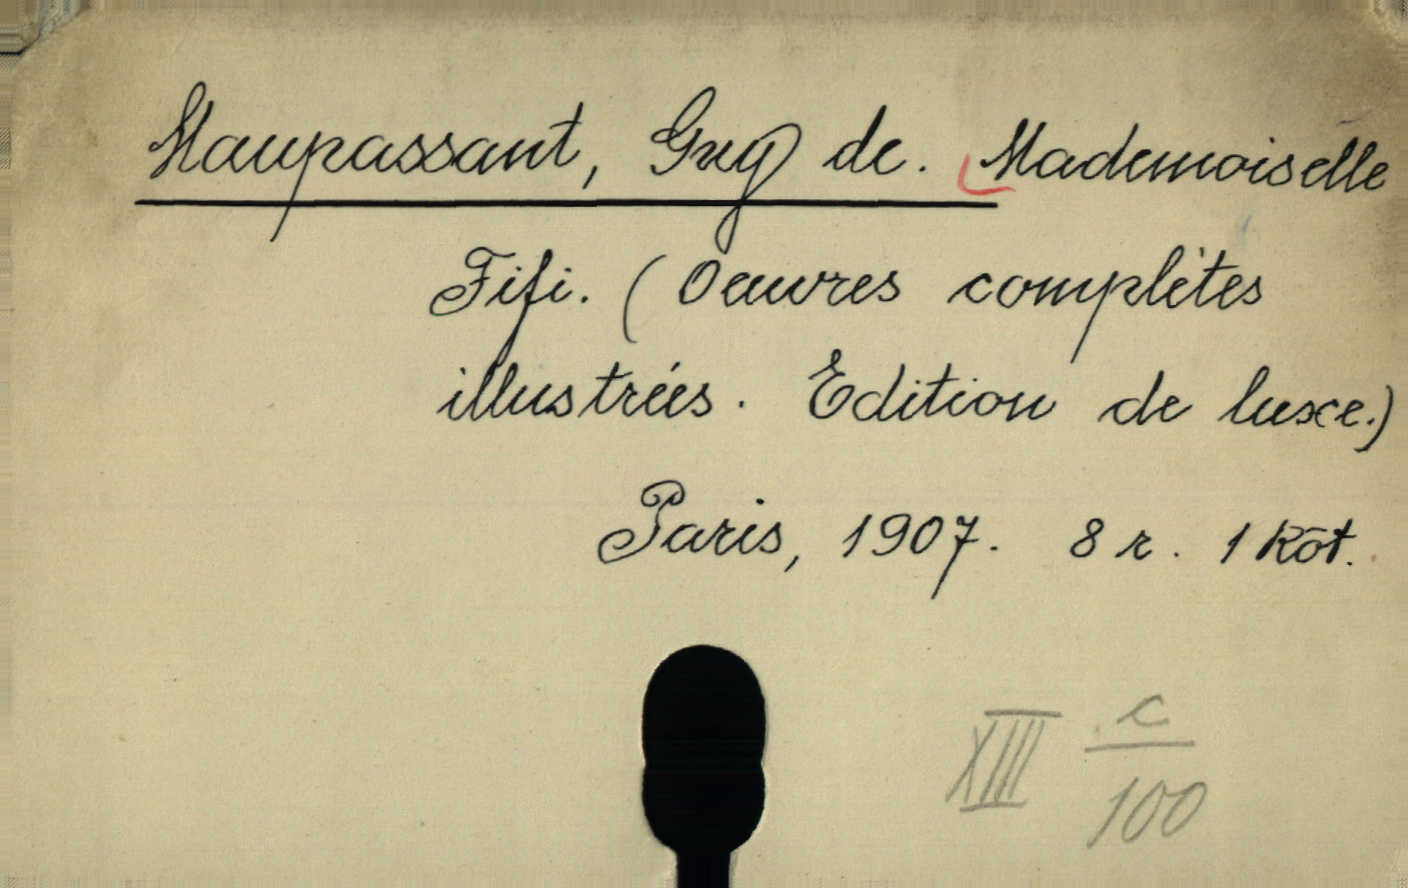 Maupassant, Guy de. Mademoiselle
Fifi. (Oeuvres complètes
illustrées. Edition de luxe.)
Paris, 1907. 8 r. 1 Köt.
XIII c/100